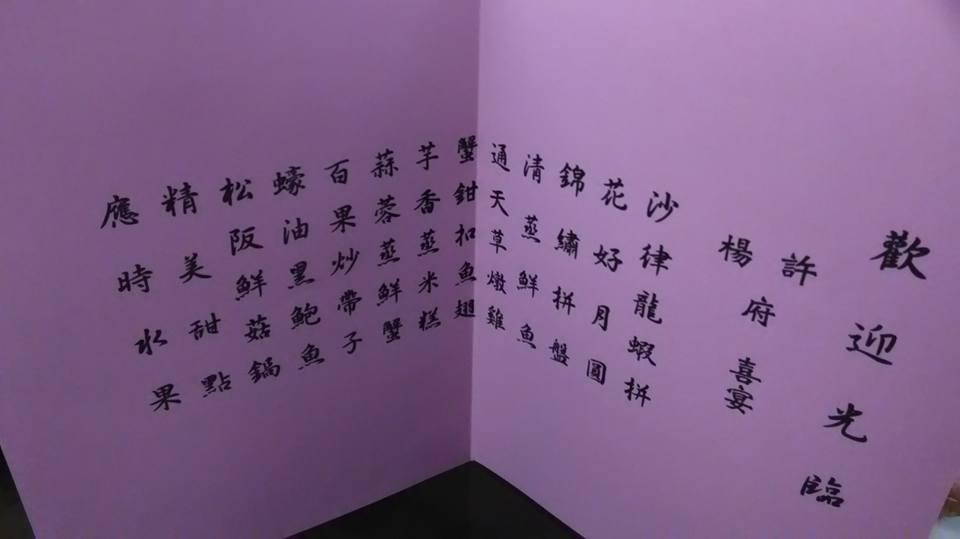 歡迎光臨
許
楊府喜宴
沙律龍蝦拼
花好月圓
錦繡拼盤
清蒸鮮魚
通天草燉雞
蟹鉗扣魚翅
芋香蒸米糕
蒜蓉蒸鮮蟹
百果炒帶子
蠔油黑鮑魚
松阪鮮菇鍋
精美甜點
應時水果